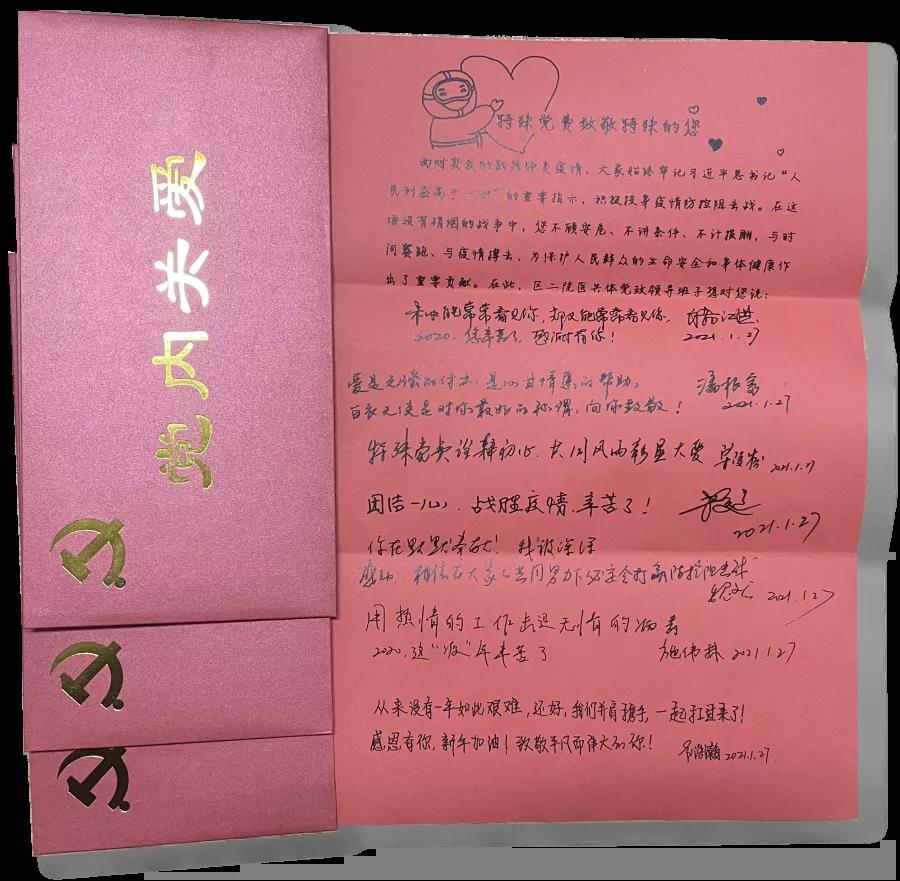 党内关爱
特殊党费致敬特殊的您
面对突发的新冠肺炎疫情，大家始终牢记习近平总书记“人
民利益高于一切”的重要指示，积极投身疫情防控阻击战。在这
场没有硝烟的战争中，您不顾安危、不讲条件、不计报酬，与时
间赛跑、与疫情搏击，为保护人民群众的生命安全和身体健康作
出了重要贡献。在此，区二院医共体党政领导班子想对您说：
能常常看见你，却又能常常看见你。
2020，您辛苦了，感谢有你！ 2021.1.27
爱是无偿的付出，是心甘情愿的帮助，
白衣天使是对你最好的称谓，向你致敬！ 2021.1.27
特殊党费诠释初心，大川风雨彰显大爱 2021.1.27
团结一心，战胜疫情，辛苦了！
2021.1.27
你在默默奉献！我被深深
感动，相信在大家共同努力下必定会打赢防控阻击战
2021.1.27
用热情的工作击退无情的病毒
2020，这“疫”年辛苦了 施伟林 2021.1.27
从来没有一年如此艰难，还好，我们并肩携手，一起扛过来了！
感恩有你，新年加油！致敬平凡而伟大的你！ 2021.1.27